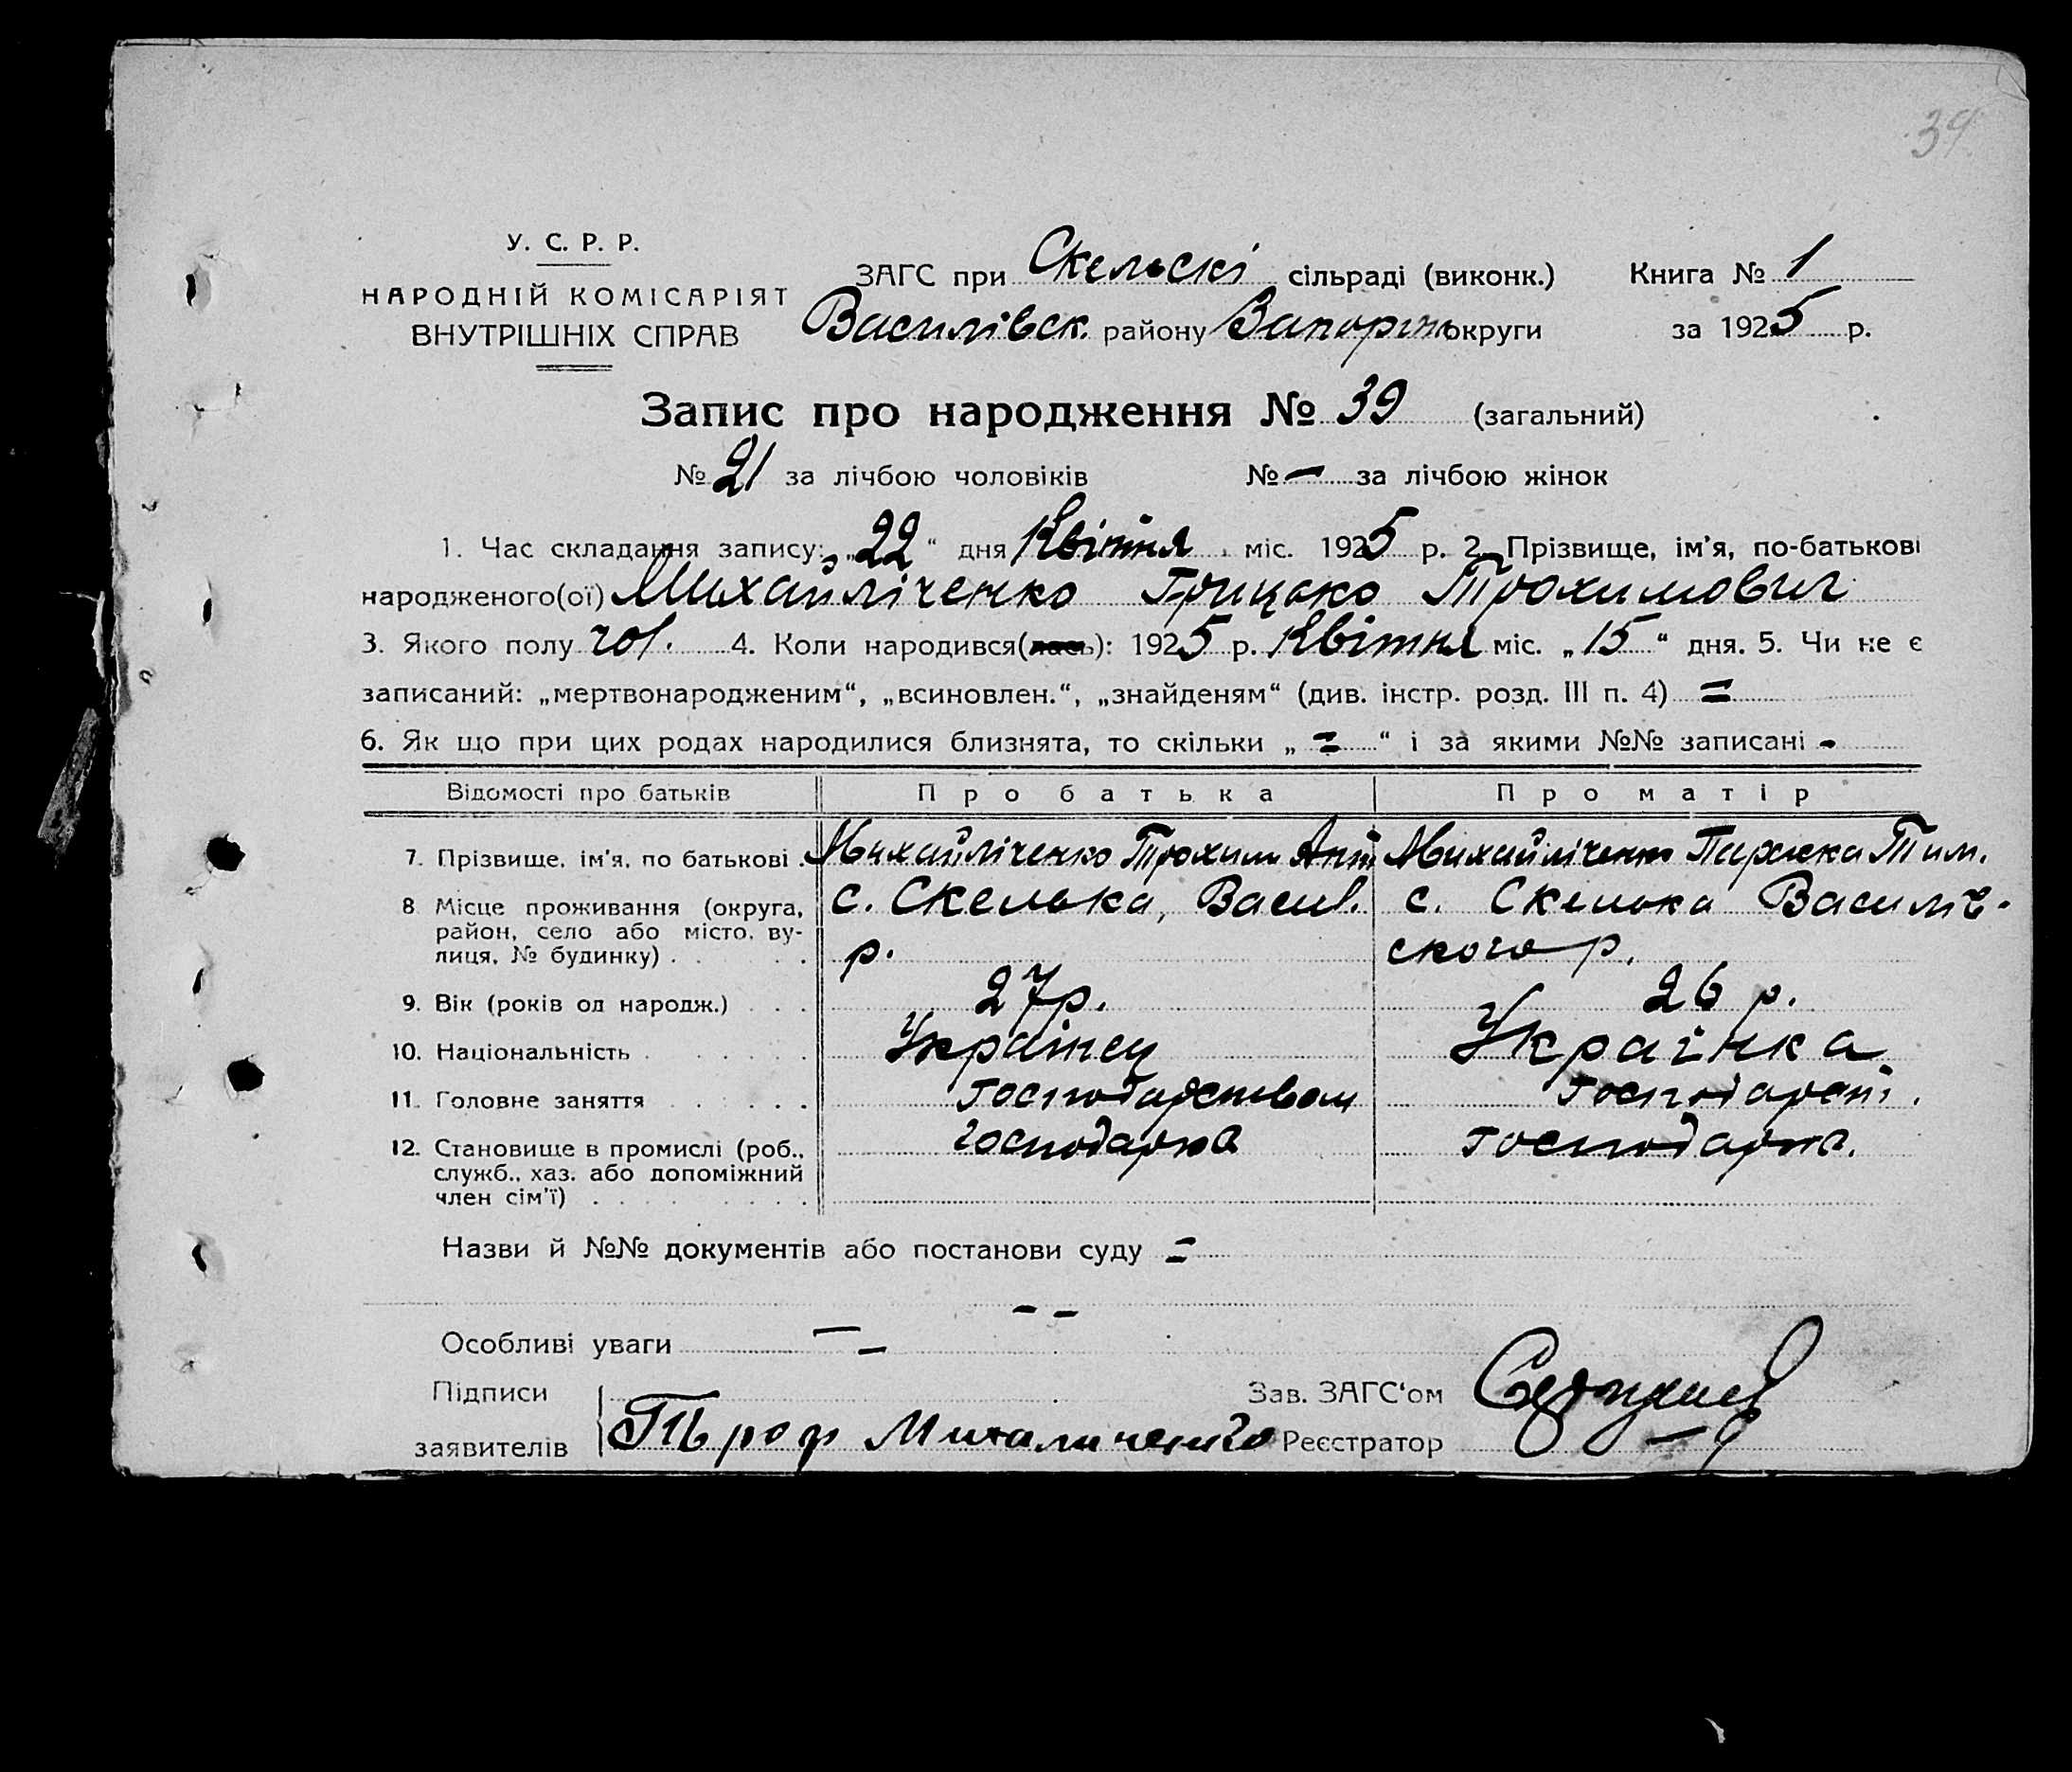 39
У. С. Р. Р.
НАРОДНІЙ КОМІСАРІЯТ
ВНУТРІШНІХ СПРАВ
ЗАГС при Скельскі сільраді (виконк.) Книга № 1
Василівск. району Запоріж округи за 1925 р.
Запис про народження № 39 (загальний)
№ 21 за лічбою чоловіків № — за лічбою жінок
1. Час складання запису: „22“ дня Квітня міс. 1925 р. 2. Прізвище, ім'я, по-батькові
народженого(ої) Михайліченко Грицько Трохимович
3. Якого полу чол. 4. Коли народився(лась): 1925 р. Квітня міс. „15“ дня. 5. Чи не є
записаний: „мертвонародженим“, „всиновлен.“, „знайденям“ (див. інстр. розд. III п. 4) =
6. Як що при цих родах народилися близнята, то скільки „=“ і за якими №№ записані -
Відомості про батьків Про батька Про матір
7. Прізвище, ім'я, по батькові . Михайліченко Трохим Ант Михайліченко Параска Тим.
8 Місце проживання (округа, район, село або місто, вулиця, № будинку) . . . . с. Скелька, Васил. р. с. Скелька Василів-ского р.
9. Вік (років од народж.) . . . 27 р. 26 р.
10. Національність . . . . . . . Українец Українка
11. Головне заняття . . . . . . Господарством Господарст.
12. Становище в промислі (роб., служб., хаз. або допоміжний член сім'ї) . . . . . . . господарка господарка.
Назви й №№ документів або постанови суду =
- -
Особливі уваги — -
Підписи Зав. ЗАГС'ом
заявителів Реєстратор